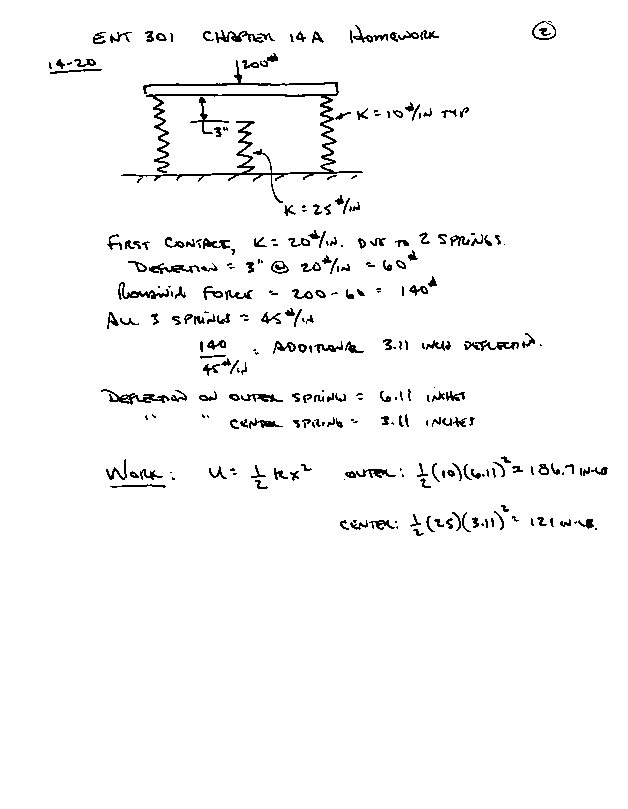 ENT 301 CHAPTER 14A HOMEWORK 2
14-20
200#
K = 10#/IN TYP
3"
K = 25#/IN
FIRST CONTACT, K = 20#/IN. DUE TO 2 SPRINGS.
DEFLECTION = 3" @ 20#/IN = 60#
REMAINING FORCE = 200 - 60 = 140#
ALL 3 SPRINGS = 45#/IN
140
45#/IN = ADDITIONAL 3.11 INCH DEFLECTION.
DEFLECTION ON OUTER SPRING = 6.11 INCHES
" " CENTER SPRING = 3.11 INCHES
WORK: U = 1/2 kx² OUTER: 1/2(10)(6.11)² = 186.7 IN-LB
CENTER: 1/2(25)(3.11)² = 121 IN-LB.